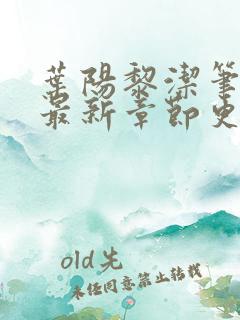 葉陽黎潔筆
最新章節史
old先
未经同意禁止转载